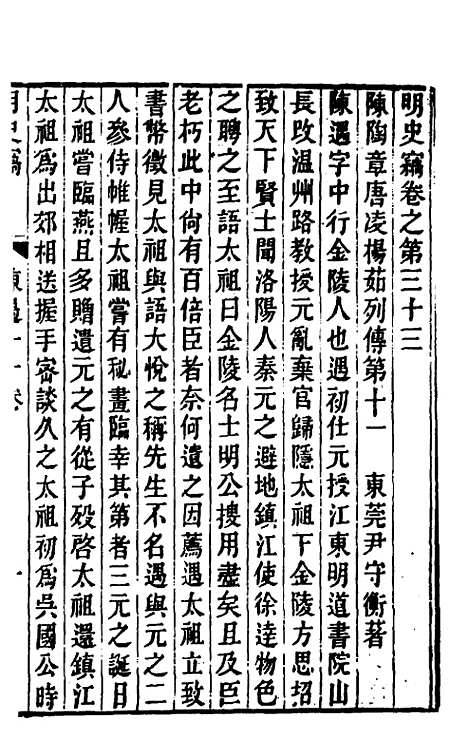 明史竊卷之第三十三
陳陶章唐凌楊茹列傳第十一　東莞尹守衡著
陳遇字中行金陵人也遇初仕元授江東明道書院山
長改温州路教授元亂棄官歸隱太祖下金陵方思招
致天下賢士聞洛陽人秦元之避地鎮江使徐達物色
之聘之至語太祖曰金陵名士明公搜用盡矣且及臣
老朽此中尙有百倍臣者奈何遺之因薦遇太祖立致
書幣徵見太祖與語大悅之稱先生不名遇與元之二
人參侍帷幄太祖嘗有秘畫臨幸其第者三元之誕日
太祖嘗臨燕且多贈遺元之有從子殁啓太祖還鎮江
太祖爲出郊相送握手密談久之太祖初爲吳國公時